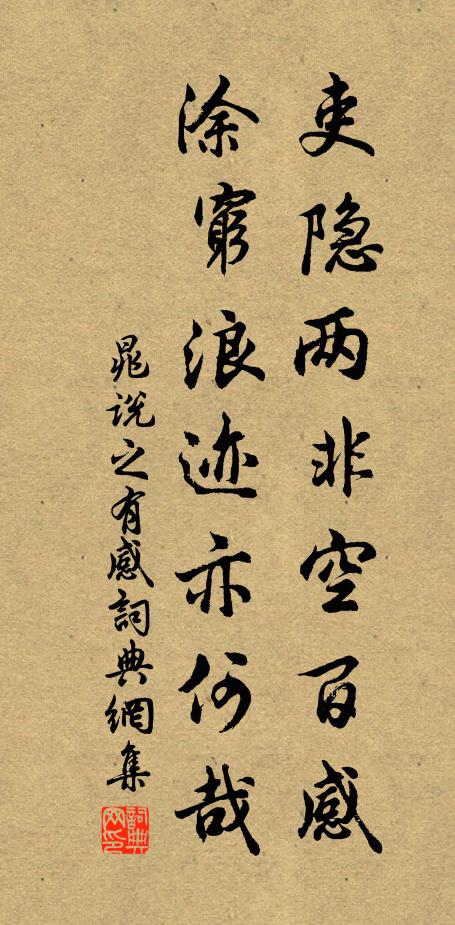 吏隐两非空百感
涂穷浪迹亦何哉
晁说之有感詞典網集
詞典网印